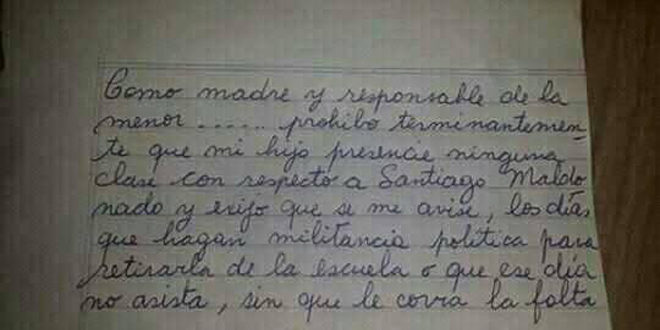 Como madre y responsable de la
menor ...... prohibo terminantemen-
te que mi hijo presencie ninguna
clase con respecto a Santiago Maldo
nado y exijo que se me avise, los días
que hagan militancia política para
retirarla de la escuela o que ese día
no asista, sin que le corra la falta